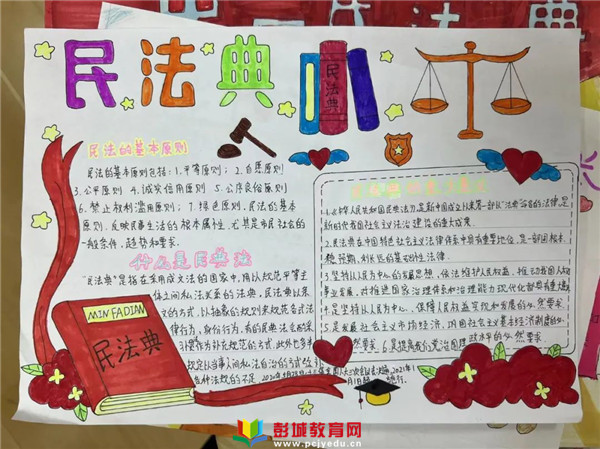 民法典
民法典
民法的基本原则
民法的基本原则包括：1.平等原则；2.自愿原则
3.公平原则 4.诚实信用原则 5.公序良俗原则
6.禁止权利滥用原则；7.绿色原则，民法的基本
原则，反映民事生活的根本属性，尤其是市民社会的
一般条件，趋势和要求。
什么是民典法
"民法典"是指在采用成文法的国家中，用以规范平等主
体之间私法关系的法典，民法典以条
文的方式，以抽象的规则来规范各式法
律行为，身份行为，有的民典法会
MINFADIAN
民法典
1.中华人民共和国民法典是新中国成立以来第一部以"法典"命名的法律，是
新时代我国社会主义法治建设的重大成果
2.民法典在中国特色社会主义法律体系中具有重要地位，是一部固根本
稳预期、利长远的基础性法律
3.坚持以人民为中心的发展思想，依法维护人民权益，推动我国人权
事业发展，对推进国家治理体系和治理能力现代化都具有重
4.是坚持以人民为中心、保障人民权益实现和发展的必然要求
5.是发展社会主义市场经济，巩固社会主义基本经济制度的必
然要求 6.是提高我们党治国理政水平的必然要求
彭城教育网
www.pcjyedu.cn